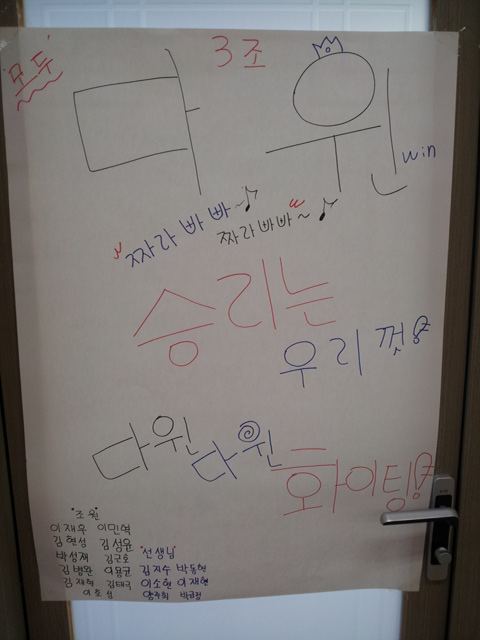 모두
3조
다윈
win
짜라빠빠~♪
짜라빠빠~♪
승리는
우리 껏!
다윈
다윈
화이팅!
"조원"
이재우 이민혁
김현성 김성윤
박성재 김근호
김병완 이용균
김재혁 김태극
이호성
"선생님"
김지수 박동현
이소현 이재현
양주희 박규정